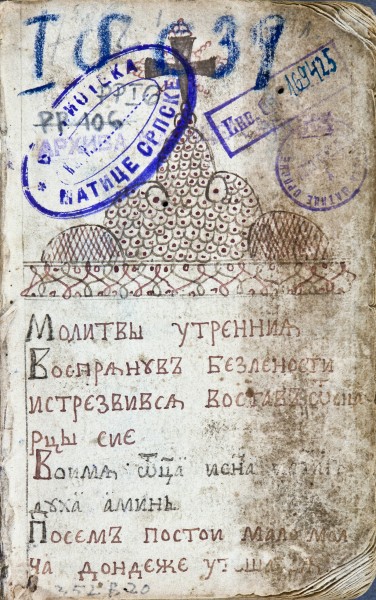 I 8 639
БИБЛИОТЕКА
МАТИЦЕ СРПСКЕ
РР I 6
РР 106
АРХИВА
Инв. 169425
МАТИЦЕ СРПСКЕ
Молитвы утренниѧ
Воспрѧнувъ безлености
истрезвивсѧ воставъ
рцы сие
Воимѧ ѿца исна
духа аминь
Посемъ постои мало мол
ча дондеже